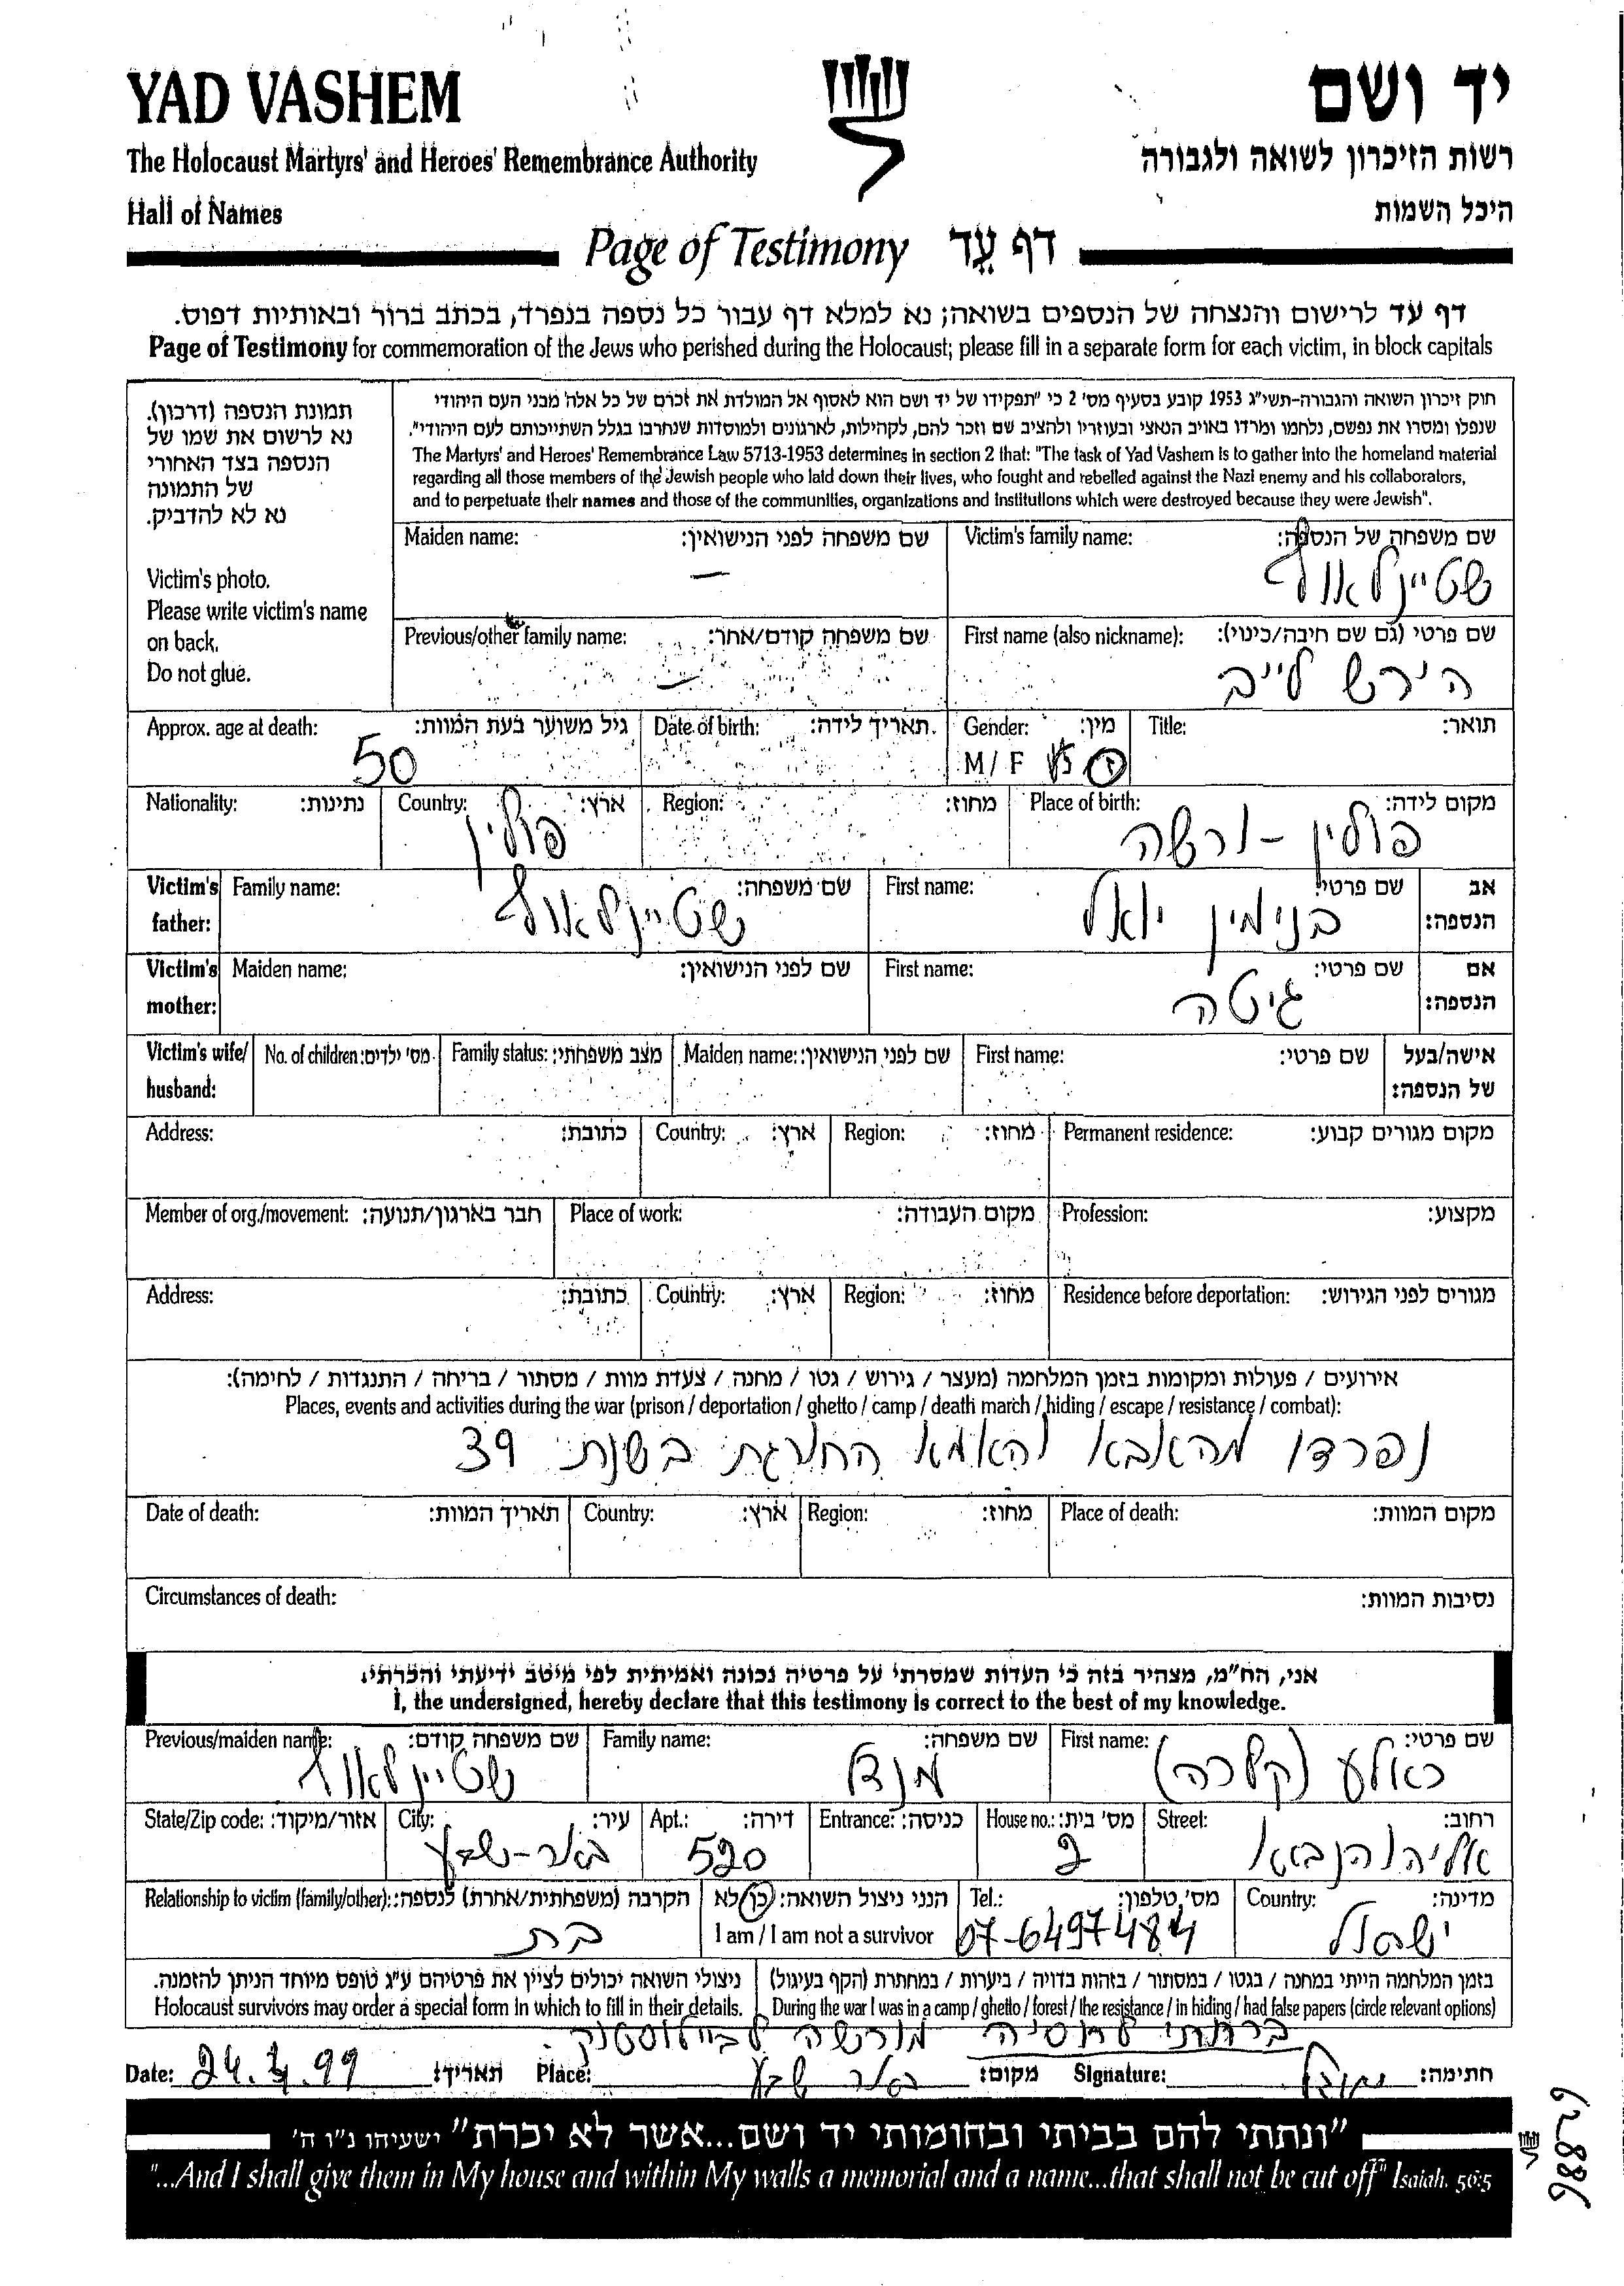 YAD VASHEM
יד ושם
The Holocaust Martyrs' and Heroes' Remembrance Authority
רשות הזיכרון לשואה ולגבורה
Hall of Names
היכל השמות
Page of Testimony דף עֵד
דף עד לרישום והנצחה של הנספים בשואה; נא למלא דף עבור כל נספה בנפרד, בכתב ברור ובאותיות דפוס.
Page of Testimony for commemoration of the Jews who perished during the Holocaust; please fill in a separate form for each victim, in block capitals
תמונת הנספה (דרכון).
נא לרשום את שמו של
הנספה בצד האחורי
של התמונה
נא לא להדביק.
Victim's photo.
Please write victim's name
on back.
Do not glue.
חוק זיכרון השואה והגבורה-תשי"ג 1953 קובע בסעיף מס' 2 כי "תפקידו של יד ושם הוא לאסוף אל המולדת את זכרם של כל אלה מבני העם היהודי
שנפלו ומסרו את נפשם, נלחמו ומרדו באויב הנאצי ובעוזריו ולהציב שם וזכר להם, לקהילות, לארגונים ולמוסדות שנחרבו בגלל השתייכותם לעם היהודי".
The Martyrs' and Heroes' Remembrance Law 5713-1953 determines in section 2 that: "The task of Yad Vashem is to gather into the homeland material
regarding all those members of the Jewish people who laid down their lives, who fought and rebelled against the Nazi enemy and his collaborators,
and to perpetuate their names and those of the communities, organizations and institutions which were destroyed because they were Jewish".
Maiden name: שם משפחה לפני הנישואין: Victim's family name: שם משפחה של הנספה:
— שטיינלאוף
Previous/other family name: שם משפחה קודם/אחר: First name (also nickname): שם פרטי (גם שם חיבה/כינוי):
— הירש לייב
Approx. age at death: גיל משוער בעת המוות: Date of birth: תאריך לידה: Gender: מין: Title: תואר:
50 M / F ז
Nationality: נתינות: Country: ארץ: Region: מחוז: Place of birth: מקום לידה:
פולין פולין - ורשה
Victim's father: Family name: שם משפחה: First name: שם פרטי: אב הנספה:
שטיינלאוף בנימין יואל
Victim's mother: Maiden name: שם לפני הנישואין: First name: שם פרטי: אם הנספה:
גיטה
Victim's wife/husband: No. of children: מס' ילדים: Family status: מצב משפחתי: Maiden name: שם לפני הנישואין: First name: שם פרטי: אישה/בעל של הנספה:
Address: כתובת: Country: ארץ: Region: מחוז: Permanent residence: מקום מגורים קבוע:
Member of org./movement: חבר בארגון/תנועה: Place of work: מקום העבודה: Profession: מקצוע:
Address: כתובת: Country: ארץ: Region: מחוז: Residence before deportation: מגורים לפני הגירוש:
אירועים / פעולות ומקומות בזמן המלחמה (מעצר / גירוש / גטו / מחנה / צעדת מוות / מסתור / בריחה / התנגדות / לחימה):
Places, events and activities during the war (prison / deportation / ghetto / camp / death march / hiding / escape / resistance / combat):
נפרדו מהאבא והאמא החורגת בשנת 39
Date of death: תאריך המוות: Country: ארץ: Region: מחוז: Place of death: מקום המוות:
Circumstances of death: נסיבות המוות:
אני, הח"מ, מצהיר בזה כי העדות שמסרתי על פרטיה נכונה ואמיתית לפי מיטב ידיעתי והכרתי.
I, the undersigned, hereby declare that this testimony is correct to the best of my knowledge.
Previous/maiden name: שם משפחה קודם: Family name: שם משפחה: First name: שם פרטי:
שטיינלאוף מנדל (קלרה)
State/Zip code: אזור/מיקוד: City: עיר: Apt.: דירה: Entrance: כניסה: House no.: מס' בית: Street: רחוב:
באר-שבע 520 2 אליהו הנביא
Relationship to victim (family/other): הקרבה (משפחתית/אחרת) לנספה: הנני ניצול השואה: כן/לא Tel.: מס' טלפון: Country: מדינה:
בת I am / I am not a survivor 07-6497484 ישראל
ניצולי השואה יכולים לציין את פרטיהם ע"ג טופס מיוחד הניתן להזמנה.
Holocaust survivors may order a special form in which to fill in their details.
בזמן המלחמה הייתי במחנה / בגטו / במסתור / בזהות בדויה / ביערות / במחתרת (הקף בעיגול)
During the war I was in a camp / ghetto / forest / the resistance / in hiding / had false papers (circle relevant options)
ברחתי לרוסיה מורשה לביילוסטוק
Date: 24.4.99 תאריך: Place: באר שבע מקום: Signature: חתימה:
"ונתתי להם בביתי ובחומותי יד ושם...אשר לא יכרת" ישעיהו נ"ו ה'
"...And I shall give them in My house and within My walls a memorial and a name...that shall not be cut off" Isaiah. 56:5